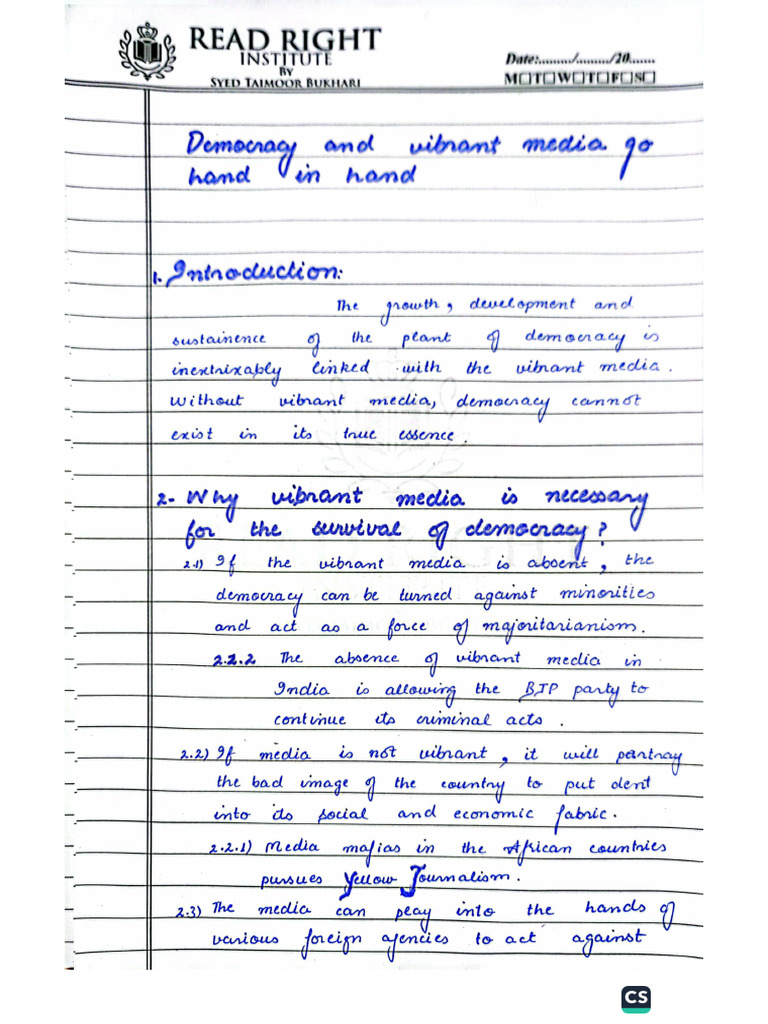 READ RIGHT
INSTITUTE
BY
SYED TAIMOOR BUKHARI
Date:........./........./20.......
M□T□W□T□F□S□
Democracy and vibrant media go
hand in hand
1. Introduction:
The growth, development and
sustainence of the plant of democracy is
inextrixaply linked with the vibrant media.
Without vibrant media, democracy cannot
exist in its true essence.
2- Why vibrant media is necessary
for the survival of democracy?
2.1) If the vibrant media is absent, the
democracy can be turned against minorities
and act as a force of majoritarianism.
2.2.2 The absence of vibrant media in
India is allowing the BJP party to
continue its criminal acts.
2.2) If media is not vibrant, it will partray
the bad image of the country to put dent
into its social and economic fabric.
2.2.1) Media mafias in the African countries
pursues Yellow Journalism.
2.3) The media can peay into the hands of
various foreign agencies to act against
CS